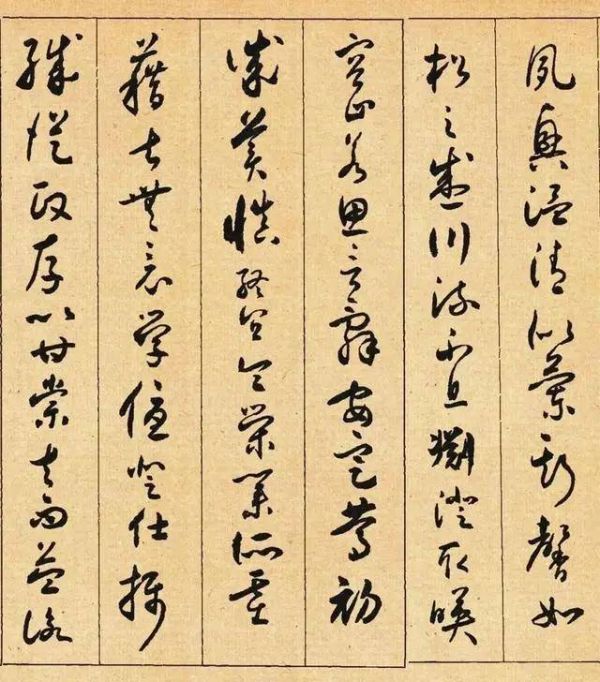 夙興温清似蘭斯馨如
松之盛川流不息淵澄取暎
容止若思言辭安定篤初
誠美慎終宜令榮業所基
藉甚無竟學優登仕攝
職從政存以甘棠去而益詠